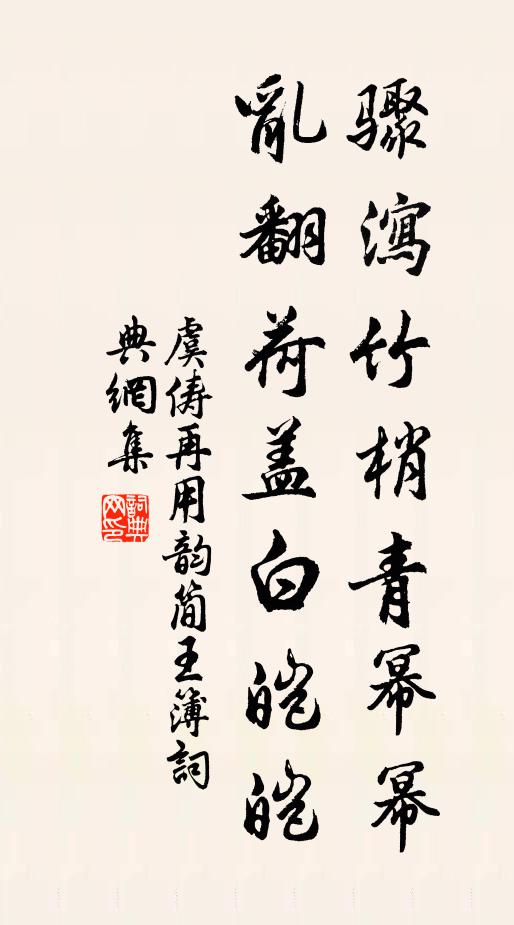 驟瀉竹梢青冪冪
亂翻荷盖白皚皚
虞儔再用韵简王簿詞
典網集
詞典网印